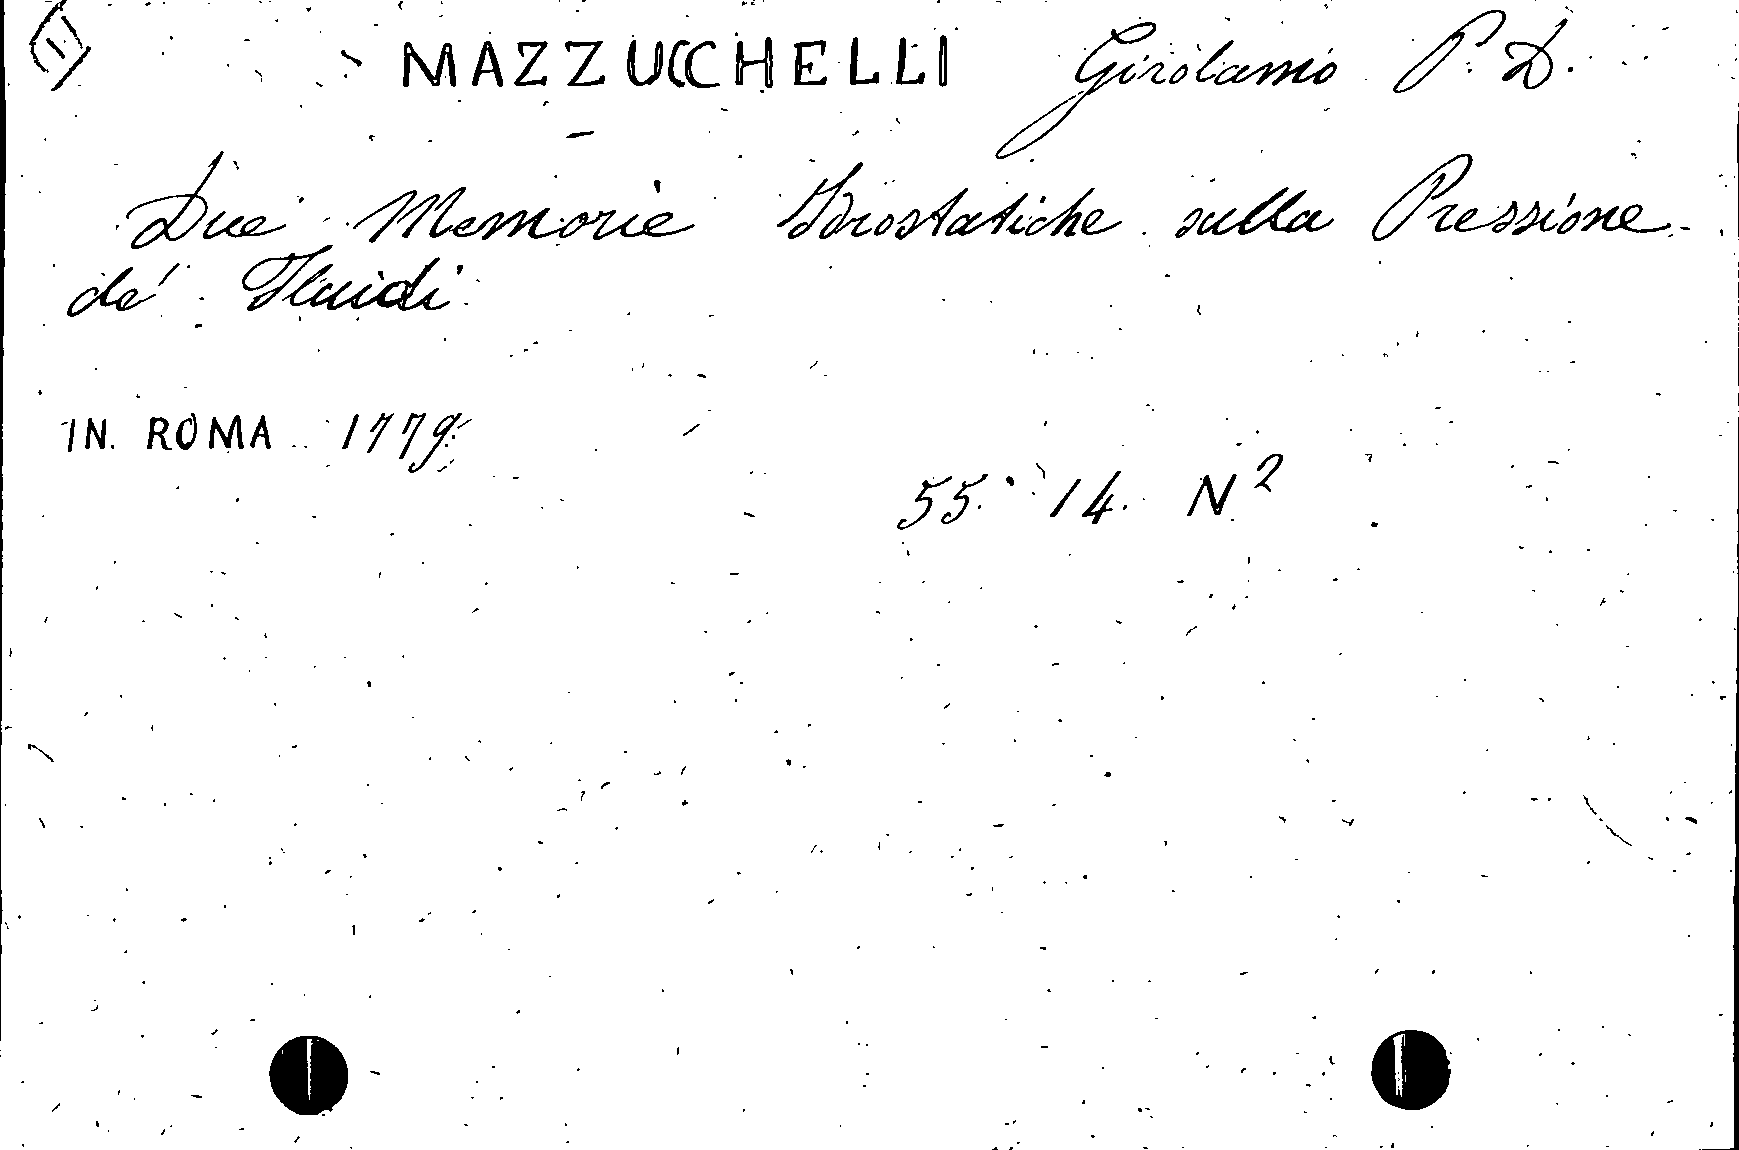 (1) MAZZUCCHELLI Girolamo P. D.
Due Memorie Idrostatiche sulla Pressione
de' Fluidi
IN ROMA 1779
55. 14. N 2